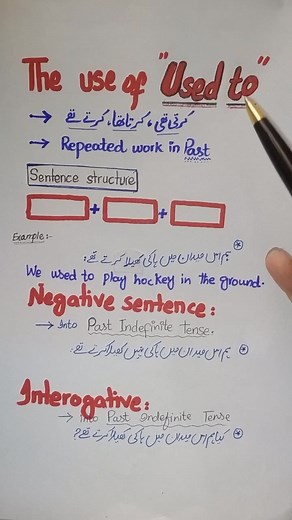 The use of "Used to"
→ کرتی تھی، کرتا تھا، کرتے تھے
→ Repeated work in Past
Sentence structure
+ +
Example:-
ہم اس میدان میں ہاکی کھیلا کرتے تھے:
We used to play hockey in the ground.
Negative sentence:
→ Into Past Indefinite Tense.
ہم اس میدان میں ہاکی نہیں کھیلا کرتے تھے:
Interogative:
→ Into Past Indefinite Tense
کیا ہم اس میدان میں ہاکی کھیلا کرتے تھے?